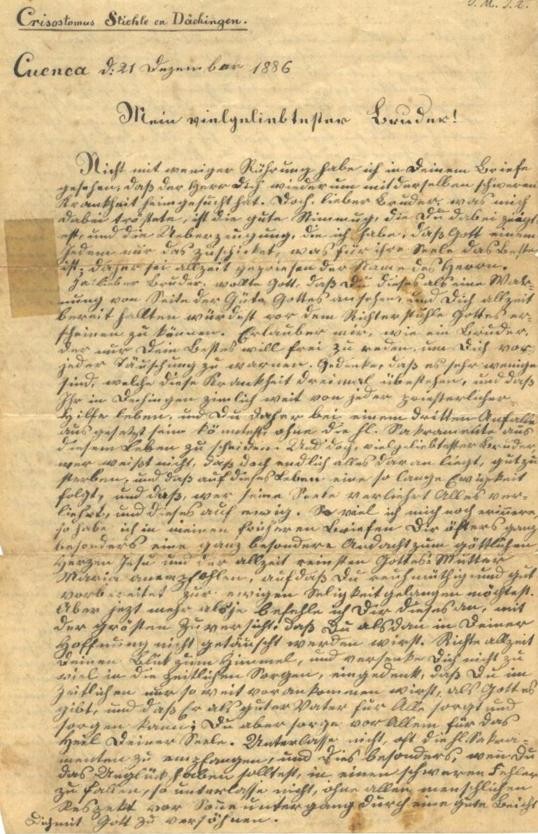 J. M. J. A.
Crisostomus Stichle in Dächingen.
Cuenca d: 21 Dezember 1886
Mein vielgeliebtester Bruder!
Nicht mit weniger Rührung habe ich in Deinem Briefe
gesehen, daß der Herr Dich wiederum mit derselben schweren
Krankheit heimgesucht hat. Doch, lieber Bruder, was mich
dabei tröstete, ist die gute Stimmung, die Du dabei zeigt
est, und die Ueberzeugung, die ich habe, daß Gott einem
Jedem nur das zuschicket, was für ihre Seele das Beste
ist; daher sei allzeit gepriesen der Name des Herrn.
Ja lieber Bruder, wollte Gott, daß Du dieses als eine Mah-
nung von Seite der Güte Gottes ansehen, und Dich allzeit
bereit halten würdest vor dem Richterstuhle Gottes er-
scheinen zu können. Erlaube mir, wie ein Bruder,
der nur Dein Bestes will frei zu reden, um Dich vor
jeder Täuschung zu warnen. Gedenke, daß es sehr wenige
sind, welche diese Krankheit dreimal überstehen, und daß
Ihr in Dechingen zimlich weit von jeder priesterlicher
Hilfe leben, und Du daher bei einem dritten Anfalle
ausgesetzt sein könntest, ohne die hl. Sakramente aus
diesem Leben zu scheiden. Und doch, vielgeliebtester Bruder,
wer weißt nicht, daß doch endlich alles daran liegt, gut zu
sterben, und daß auf dieses Leben eine so lange Ewigkeit
folgt, und daß, wer seine Seele verliehrt Alles ver-
liehrt, und dieses auf ewig. So viel ich mich noch erinnere,
so habe ich in meinen früheren Briefen Dir öfters ganz
besonders eine ganz besondere Andacht zum göttlichen
Herzen Jesu und der allzeit reinsten Gottes Mutter
Maria anempfohlen, auf daß Du reichmüthig und gut
vorbereitet zur ewigen Seligkeit gelangen möchtest.
Aber jezt mehr als je befehle ich Dir dieses an, mit
der größten Zuversicht, daß Du alsdan in Deiner
Hoffnung nicht getäuscht werden wirst. Richte allzeit
Deinen Blick zum Himmel, und versenke Dich nicht zu
viel in die zeitlichen Sorgen, eingedenk, daß Du im
zeitlichen nur so weit vorankommen wirst, als Gott es
gibt, und daß Er als guter Vater für Alle sorgt und
sorgen kann; Du aber sorge vor Allem für das
Heil Deiner Seele. Unterlasse nicht, oft die hl. Sakra-
menten zu empfangen, und dies besonders, wen Du
das Unglück haben solltest, in einen schweren Fehler
zu fallen, so unterlasse nicht, ohne allen menschlichen
Respekt vor Sonnenuntergang durch eine gute Beicht
Dich mit Gott zu versöhnen.